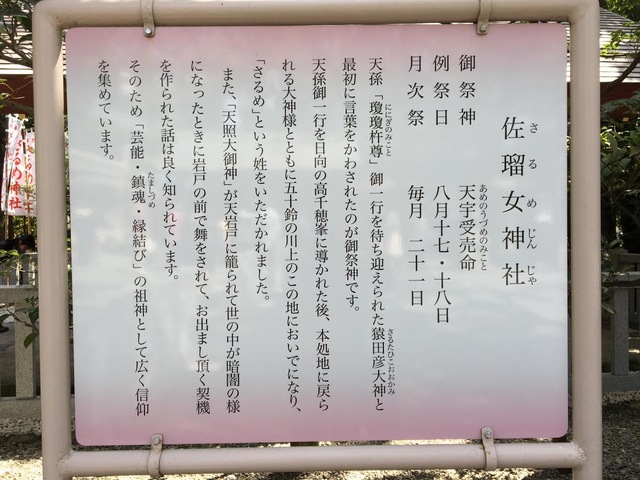 佐瑠女神社
さるめじんじゃ
御祭神 天宇受売命
あめのうづめのみこと
例祭日 八月十七・十八日
月次祭 毎月 二十一日
天孫「瓊瓊杵尊」御一行を待ち迎えられた猿田彦大神と
ににぎのみこと
さるたひこおおかみ
最初に言葉をかわされたのが御祭神です。
天孫御一行を日向の高千穂峯に導かれた後、本処地に戻ら
れる大神様とともに五十鈴の川上のこの地においでになり、
「さるめ」という姓をいただかれました。
また、「天照大御神」が天岩戸に籠られて世の中が暗闇の様
になったときに岩戸の前で舞をされて、お出まし頂く契機
を作られた話は良く知られています。
そのため「芸能・鎮魂・縁結び」の祖神として広く信仰
たましづめ
を集めています。
さるめ神社